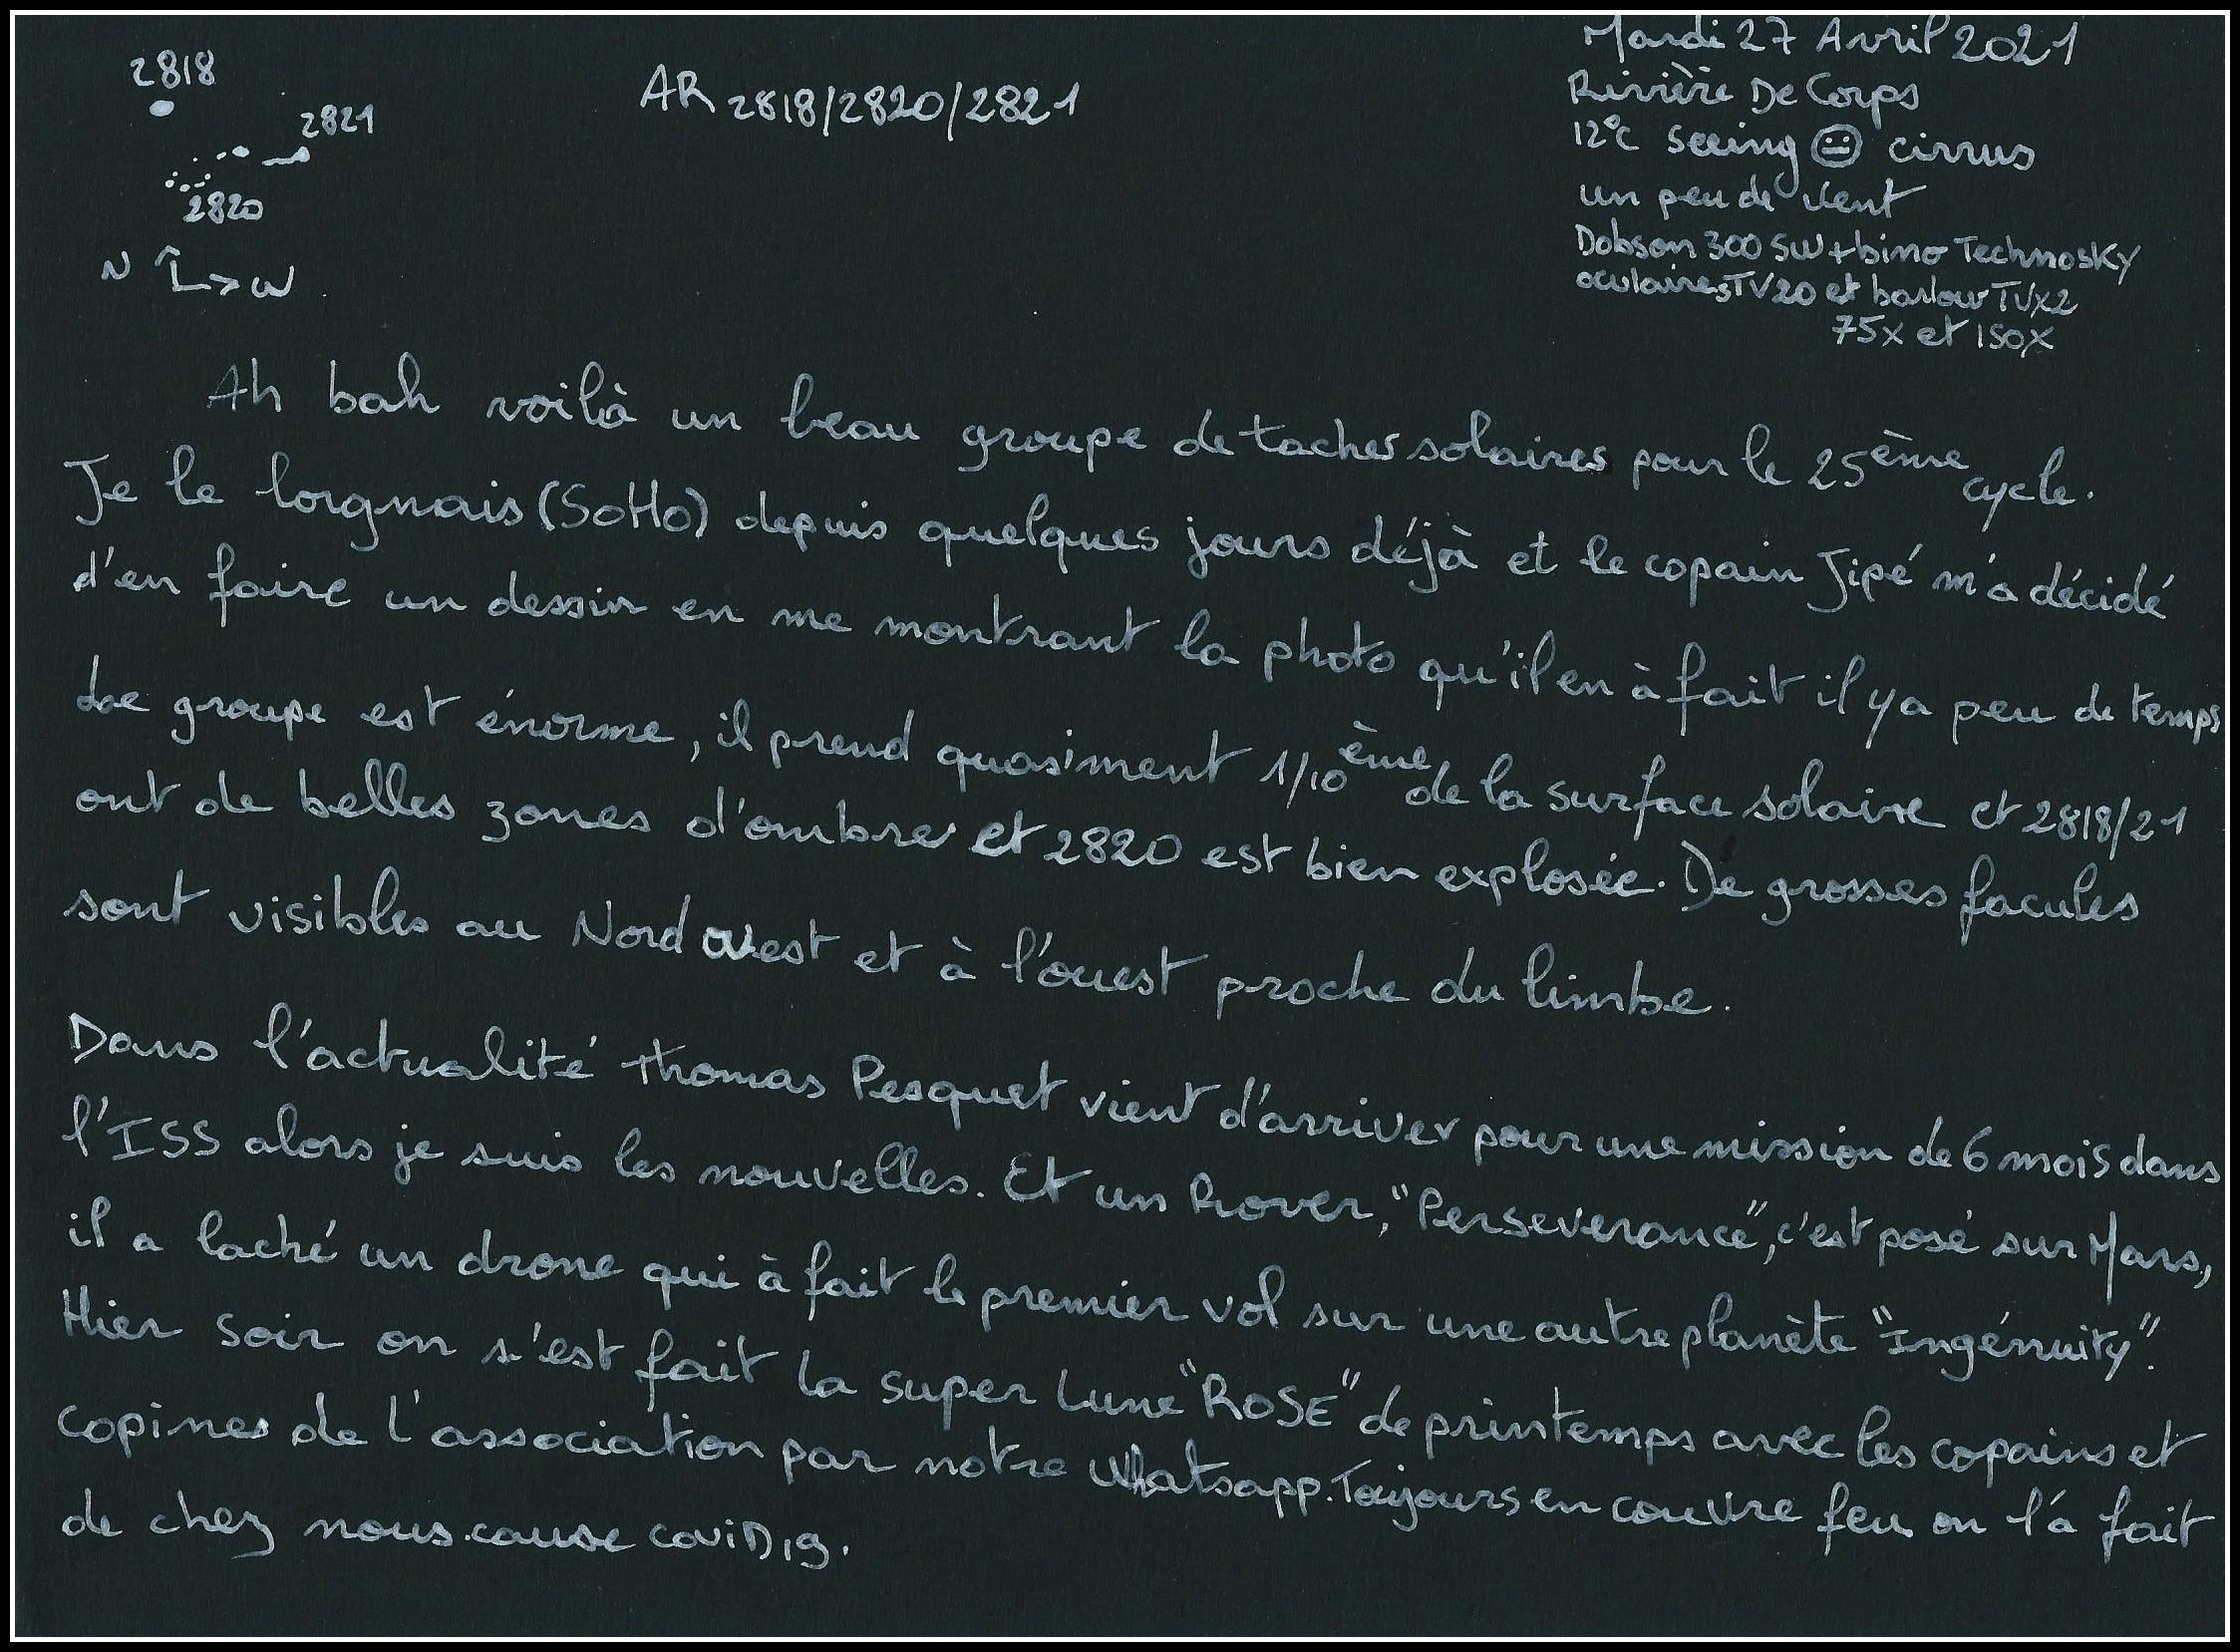 2818
2821
2820
N W
AR 2818/2820/2821
Mardi 27 Avril 2021
Rivière De Corps
12°C seeing 😐 cirrus
un peu de vent
Dobson 300 SW + bino TechnoSKY
oculaires TV20 et barlow TVx2
75x et 150x
Ah bah voilà un beau groupe de taches solaires pour le 25ème cycle.
Je le lorgnais (SoHo) depuis quelques jours déjà et le copain Jipé m'a décidé
d'en faire un dessin en me montrant la photo qu'il en à fait il y a peu de temps
Le groupe est énorme, il prend quasiment 1/10ème de la surface solaire et 2818/21
ont de belles zones d'ombre et 2820 est bien explosée. De grosses facules
sont visibles au Nord ouest et à l'ouest proche du limbe.
Dans l'actualité Thomas Pesquet vient d'arriver pour une mission de 6 mois dans
l'ISS alors je suis les nouvelles. Et un Rover, "Perseverance", c'est posé sur Mars,
il a laché un drone qui à fait le premier vol sur une autre planète "Ingénuity".
Hier soir on s'est fait la super Lune "ROSE" de printemps avec les copains et
copines de l'association par notre Whatsapp. Toujours en couvre feu on l'a fait
de chez nous cause coviD19.